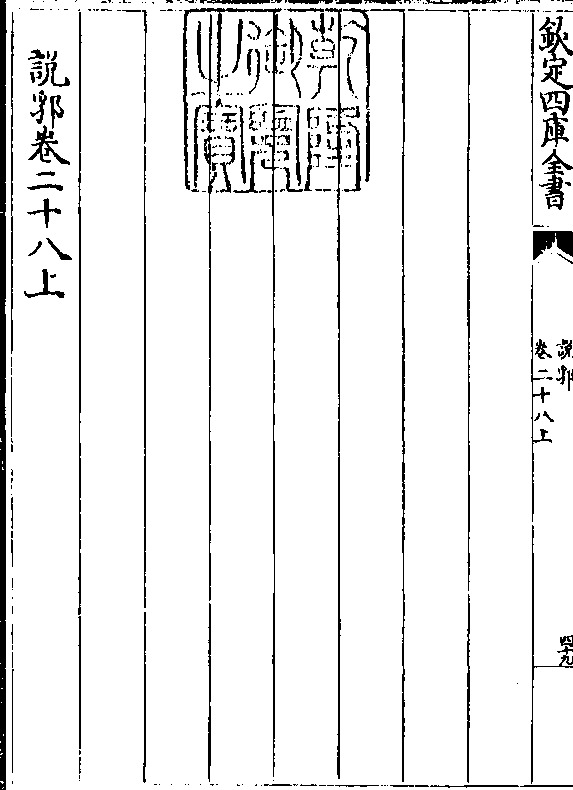 欽定四庫全書
説郛
卷二十八上
四十九
乾隆
御覽
之寶
説郛卷二十八上